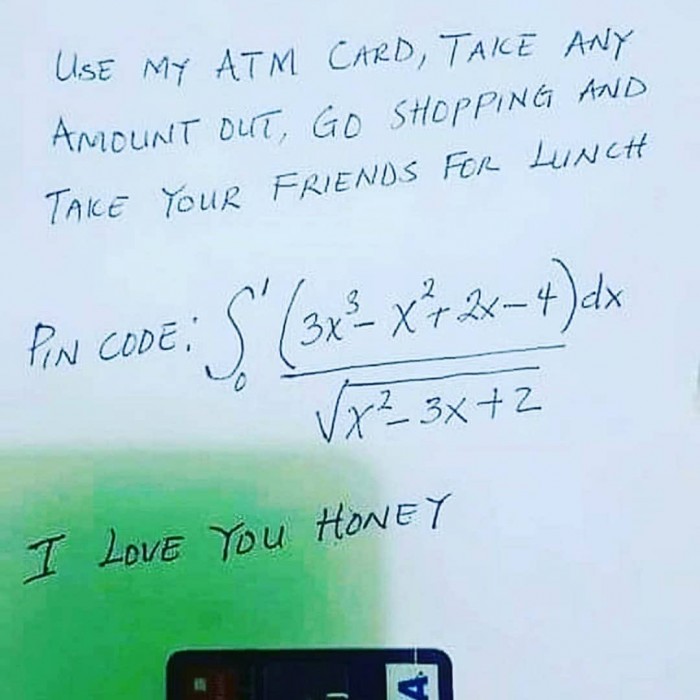 USE MY ATM CARD, TAKE ANY
AMOUNT OUT, GO SHOPPING AND
TAKE YOUR FRIENDS FOR LUNCH
PIN CODE: ∫₀¹ (3x³ - x² + 2x - 4)dx
√x² - 3x + 2
I LOVE YOU HONEY
A